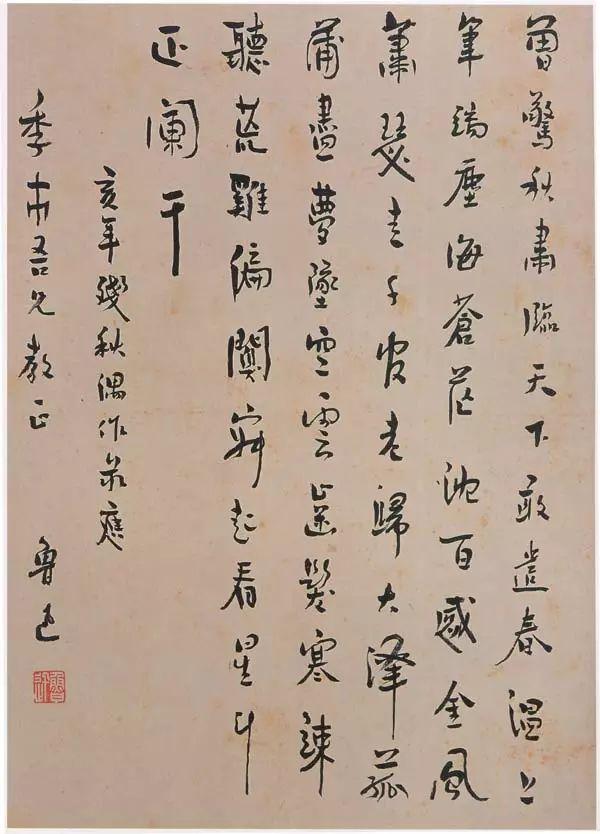 曾驚秋肅臨天下敢遣春溫上
筆端塵海蒼茫沈百感金風
蕭瑟走千官老歸大澤菰
蒲盡夢墜空雲齒髮寒竦
聽荒雞偏闃寂起看星斗
正闌干
亥年殘秋偶作錄應
季市吾兄教正
魯迅
魯迅